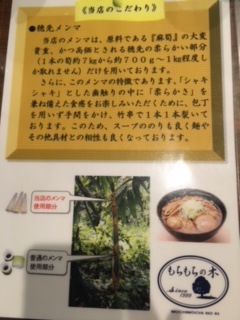 《当店のこだわり》
●穂先メンマ
当店のメンマは、原料である『麻筍』の大変
貴重、かつ高価とされる穂先の柔らかい部分
(1本の筍約7kgから約700g～1kg程度し
か取れません)だけを用いております。
さらに、このメンマの特徴であります、「シャキ
シャキ」とした歯触りの中に「柔らかさ」を
兼ね備えた食感をお楽しみいただくために、包丁
を用いず手間をかけ、竹串で1本1本裂いて
おります。このため、スープののりも良く麺や
その他具材との相性も良くなっております。
当店のメンマ
使用部分
普通のメンマ
使用部分
もちもちの木
since
1999
MOCHIMOCHI NO KI